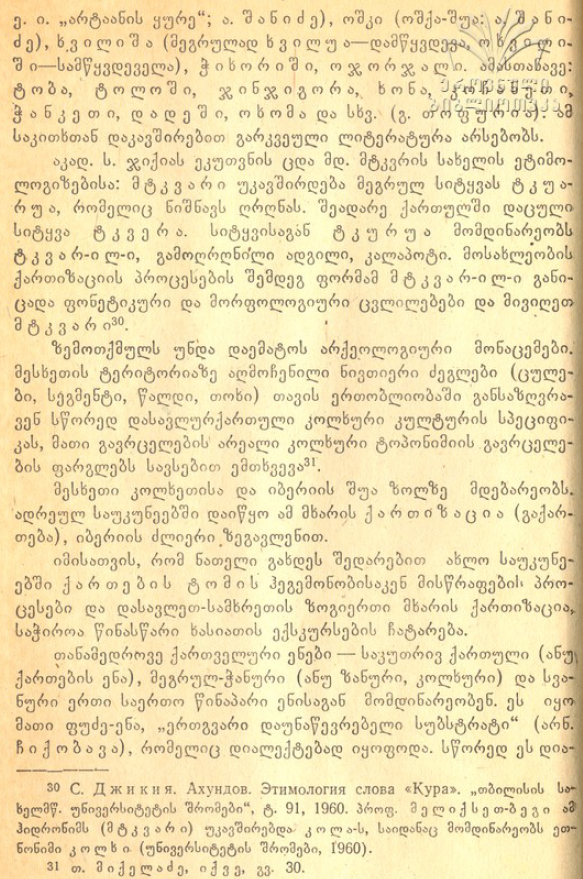 ე. ი. „არტაანის ყურე“; ა. შანიძე), ოშკი (ოშქა-შუა: ა. შანი-
ძე), ხვილიშა (მეგრულად ხვილუა—დამწყვდევა, ოხვილი-
ში—სამწყვდეველა), ჭიხორიში, ოჯორჯალი. ამასთანავე:
ტობა, ტოლოში, ჯინჯიგორა, ხონა,
ჭანკეთი, დადეში, ოხომა და სხვ. (გ. თოფურია). ამ
საკითხთან დაკავშირებით გარკვეული ლიტერატურა არსებობს.
აკად. ს. ჯიქიას ეკუთვნის ცდა მდ. მტკვრის სახელის ეტიმო-
ლოგიზებისა: მტკვარი უკავშირდება მეგრულ სიტყვას ტკუა-
რუა, რომელიც ნიშნავს ღრღნას. შეადარე ქართულში დაცული
სიტყვა ტკვერა. სიტყვისაგან ტკურუა მომდინარეობს
ტკვარ-ილ-ი, გამოღრღნილი ადგილი, კალაპოტი. მოსახლეობის
ქართიზაციის პროცესების შემდეგ ფორმამ მტკვარ-ილ-ი განი-
ცადა ფონეტიკური და მორფოლოგიური ცვლილებები და მივიღეთ
მტკვარი³⁰.
ზემოთქმულს უნდა დაემატოს არქეოლოგიური მონაცემები.
მესხეთის ტერიტორიაზე აღმოჩენილი ნივთიერი ძეგლები (ცულე-
ბი, სეგმენტი, წალდი, თოხი) თავის ერთობლიობაში განსაზღვრა-
ვენ სწორედ დასავლურქართული კოლხური კულტურის სპეციფი-
კას, მათი გავრცელების არეალი კოლხური ტოპონიმიის გავრცელე-
ბის ფარგლებს სავსებით ემთხვევა³¹.
მესხეთი კოლხეთისა და იბერიის შუა ზოლზე მდებარეობს.
ადრეულ საუკუნეებში დაიწყო ამ მხარის ქართიზაცია (გაქარ-
თება), იბერიის ძლიერი ზეგავლენით.
იმისათვის, რომ ნათელი გახდეს შედარებით ახლო საუკუნე-
ებში ქართების ტომის ჰეგემონობისაკენ მისწრაფების პრო-
ცესები და დასავლეთ-სამხრეთის ზოგიერთი მხარის ქართიზაცია,
საჭიროა წინასწარი ხასიათის ექსკურსების ჩატარება.
თანამედროვე ქართველური ენები — საკუთრივ ქართული (ანუ
ქართების ენა), მეგრულ-ჭანური (ანუ ზანური, კოლხური) და სვა-
ნური ერთი საერთო წინაპარი ენისაგან მომდინარეობენ. ეს იყო
მათი ფუძე-ენა, „ერთგვარი დაუნაწევრებელი სუბსტრატი“ (არნ.
ჩიქობავა), რომელიც დიალექტებად იყოფოდა. სწორედ ეს დია-
³⁰ С. Джикия. Ахундов. Этимология слова «Кура». „თბილისის სა-
ხელმწ. უნივერსიტეტის შრომები“, ტ. 91, 1960. პროფ. მელიქსეთ-ბეგი ამ
ჰიდრონიმს (მტკვარი) უკავშირებდა კოლა-ს, საიდანაც მომდინარეობს ეთ-
ნონიმი კოლხი (უნივერსიტეტის შრომები, 1960).
³¹ თ. მიქელაძე, იქვე, გვ. 30.
ეროვნული
ბიბლიოთეკა